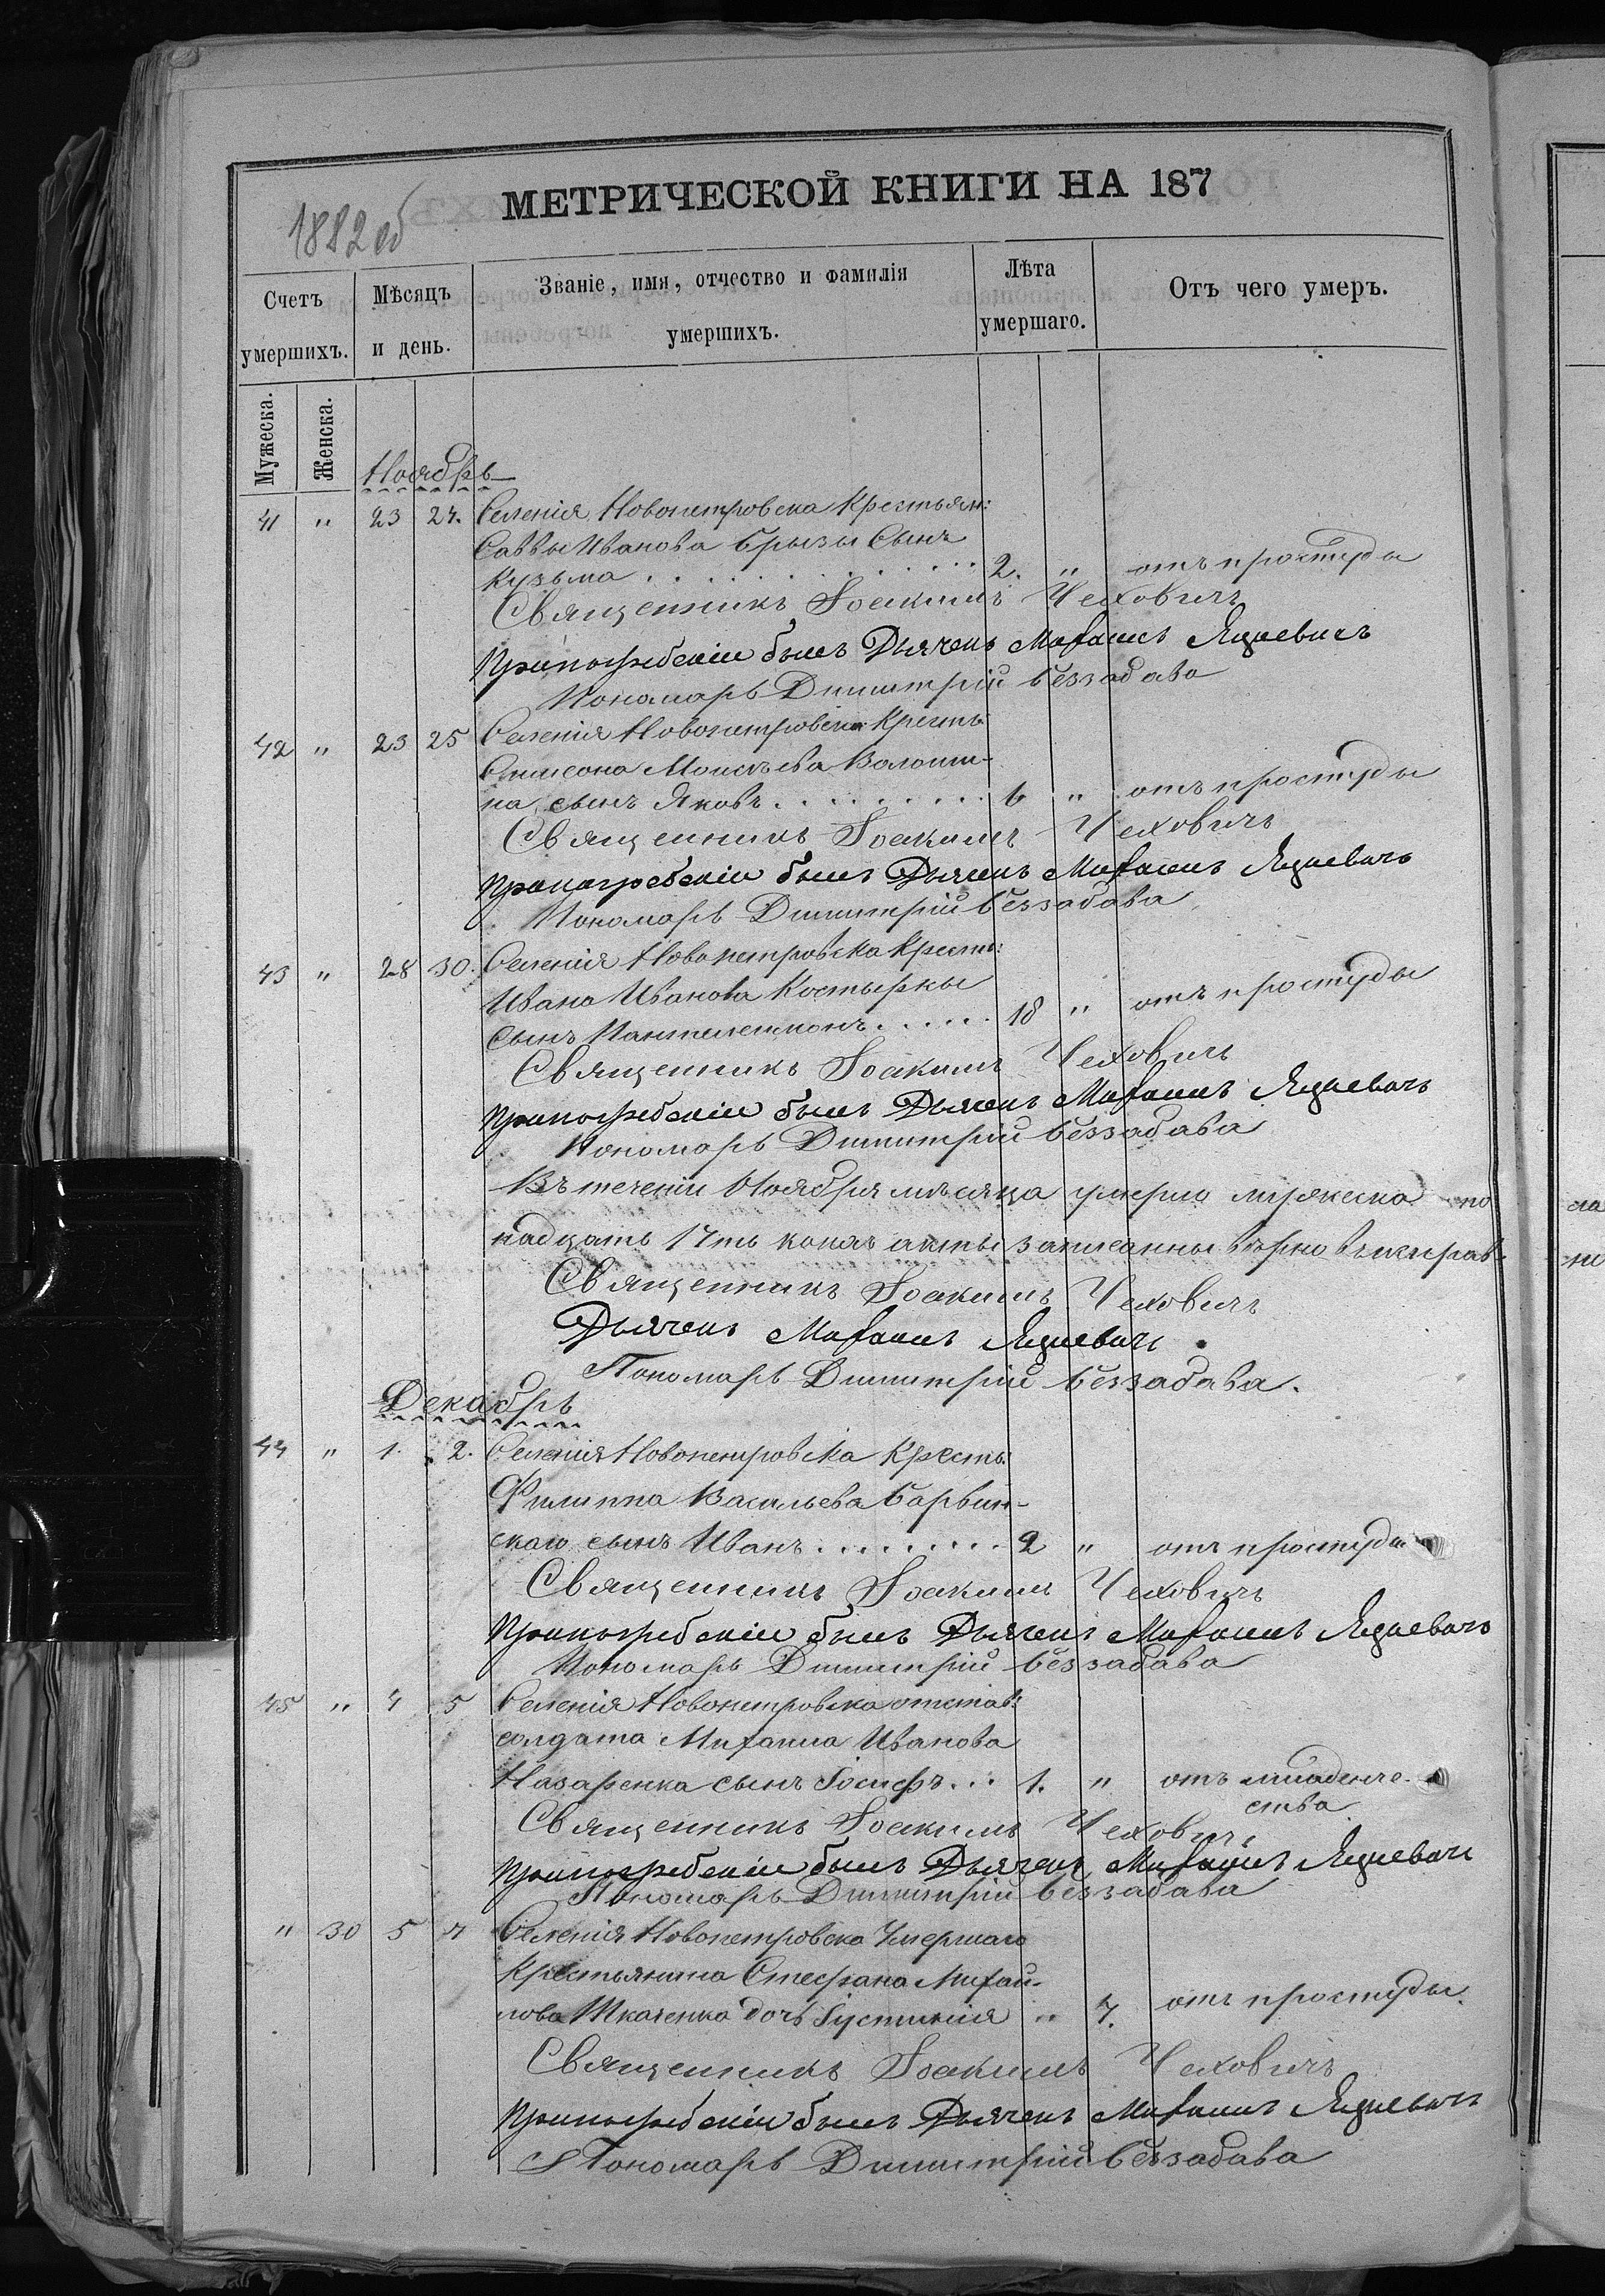 МЕТРИЧЕСКОЙ КНИГИ НА 187
1882 об
Счетъ умершихъ.
Мѣсяцъ и день.
Званіе, имя, отчество и фамилія умершихъ.
Лѣта умершаго.
Отъ чего умеръ.
Мужеска.
Женска.
Ноябрь
41 " 23 24. Селенія Новопетровска Крестьян:
Саввы Иванова Брызы Сынъ
Кузьма . . . . . . . . . . . 2. " отъ простуды
Священникъ Іоакимъ Чеховичъ
При погребеніи былъ Дьячекъ Михаилъ Яцкевичъ
Пономарь Димитрій Беззабава
42 " 23 25 Селенія Новопетровска Кресть:
Симеона Моисѣева Волоши-
на сынъ Яковъ . . . . . . . . . 6 " отъ простуды
Священникъ Іоакимъ Чеховичъ
При погребеніи былъ Дьячекъ Михаилъ Яцкевичъ
Пономарь Димитрій Беззабава
43 " 28 30. Селенія Новопетровска Кресть:
Ивана Иванова Костырки
сынъ Пантелеимонъ . . . . . 18 " отъ простуды
Священникъ Іоакимъ Чеховичъ
При погребеніи былъ Дьячекъ Михаилъ Яцкевичъ
Пономарь Димитрій Беззабава
Въ теченіи Ноября мѣсяца умерло мужеска по
надцать 17ть коихъ акты записанны вѣрно
Священникъ Іоакимъ Чеховичъ
Дьячекъ Михаилъ Яцкевичъ
Пономарь Димитрій Беззабава.
Декабрь
44 " 1. 2. Селенія Новопетровска Кресть:
Филиппа Васильева Барвин-
скаго сынъ Иванъ . . . . . . . . 2 " отъ простуды
Священникъ Іоакимъ Чеховичъ
При погребеніи былъ Дьячекъ Михаилъ Яцкевичъ
Пономарь Димитрій Беззабава
45 " 4 5 Селенія Новопетровска отстав:
солдата Михаила Иванова
Назаренка сынъ Іосифъ . . . 1. " отъ младенче-
ства
Священникъ Іоакимъ Чеховичъ
При погребеніи былъ Дьячекъ Михаилъ Яцкевичъ
Пономарь Димитрій Беззабава
" 30 5 7 Селенія Новопетровска Умершаго
Крестьянина Стефана Михай-
лова Ткаченка дочь Іустинія " 7. отъ простуды.
Священникъ Іоакимъ Чеховичъ
При погребеніи былъ Дьячекъ Михаилъ Яцкевичъ
Пономарь Димитрій Беззабава